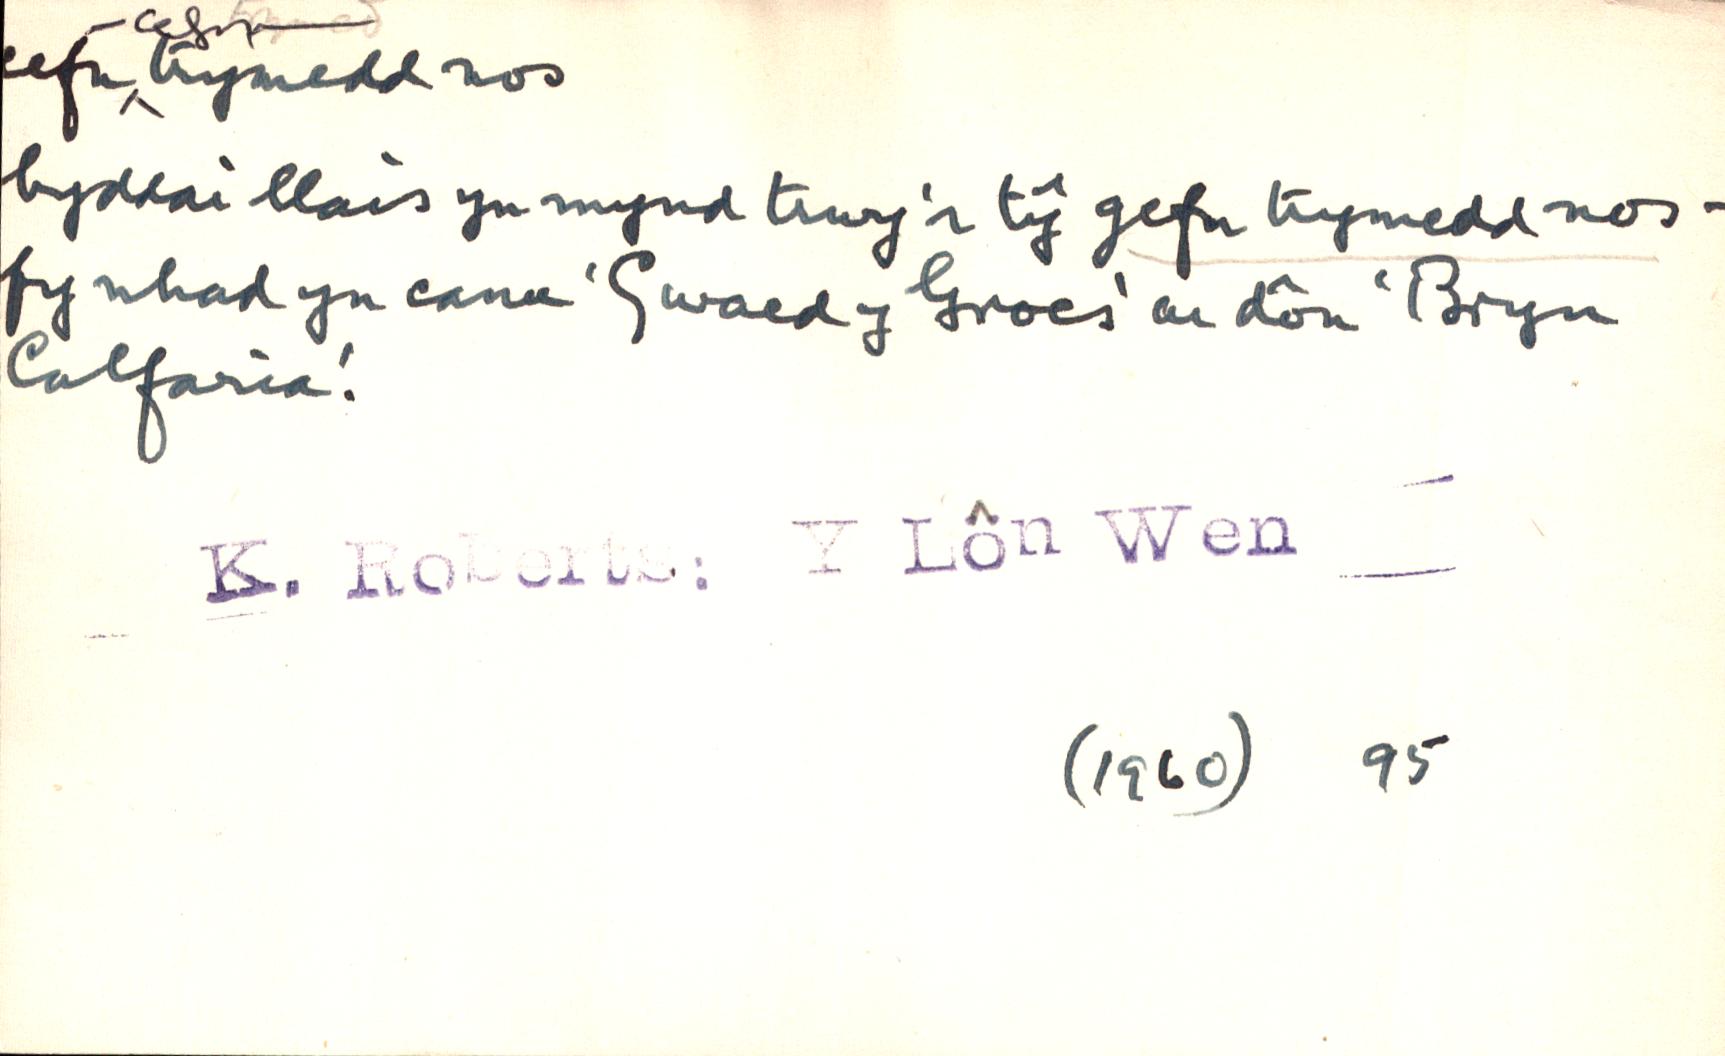 cefn trymedd nos
byddai llais yn mynd trwy'r tŷ gefn trymedd nos -
fy nhad yn canu 'Gwaed y Groes' ar dôn 'Bryn
Calfaria'.
K. Roberts: Y Lôn Wen
(1960) 95